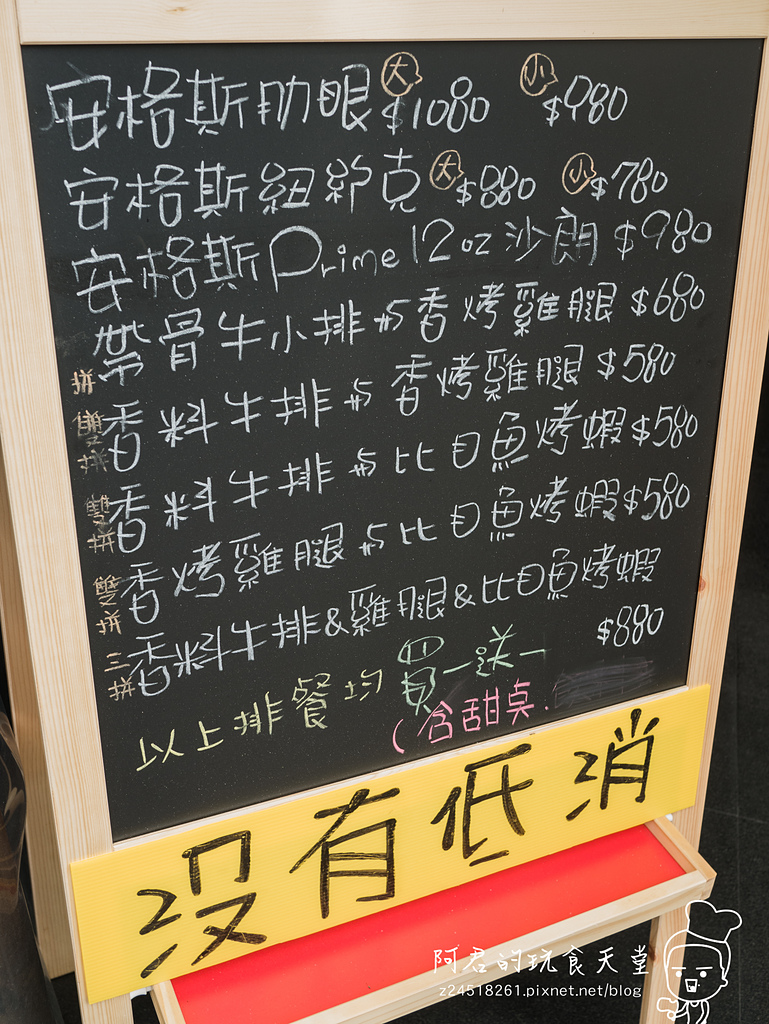 安格斯肋眼 大 $1080 小 $980
安格斯紐約克 大 $880 小 $780
安格斯Prime 12oz 沙朗 $980
帶骨牛小排与香烤雞腿 $680
雙拼 香料牛排与香烤雞腿 $580
雙拼 香料牛排与比目魚烤蝦 $580
雙拼 香烤雞腿与比目魚烤蝦 $580
三拼 香料牛排&雞腿&比目魚烤蝦
$880
以上排餐均 買一送一
(含甜桌.
沒有低消
阿君的玩食天堂
z24518261.pixnet.net/blog